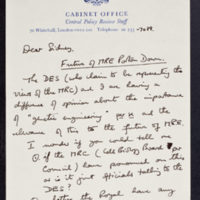 CABINET OFFICE
Central Policy Review Staff
70 Whitehall, London SW1A 2AS Telephone 01-233 7089
Dear Sidney,
Future of MRE Porton Down.
The DES (who claim to be representing the
views of the MRC) and I are having a
difference of opinion about the importance
of "genetic engineering" per se and the
relevance of this to the future of MRE.
I wonder if you could tell me
if the MRC (Cell Biology Board or
Council) have pronounced on this
or is it just officials talking to the
DES?
the Royal have any